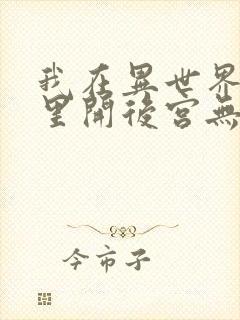 我在異世界
里開後宮無
今市子